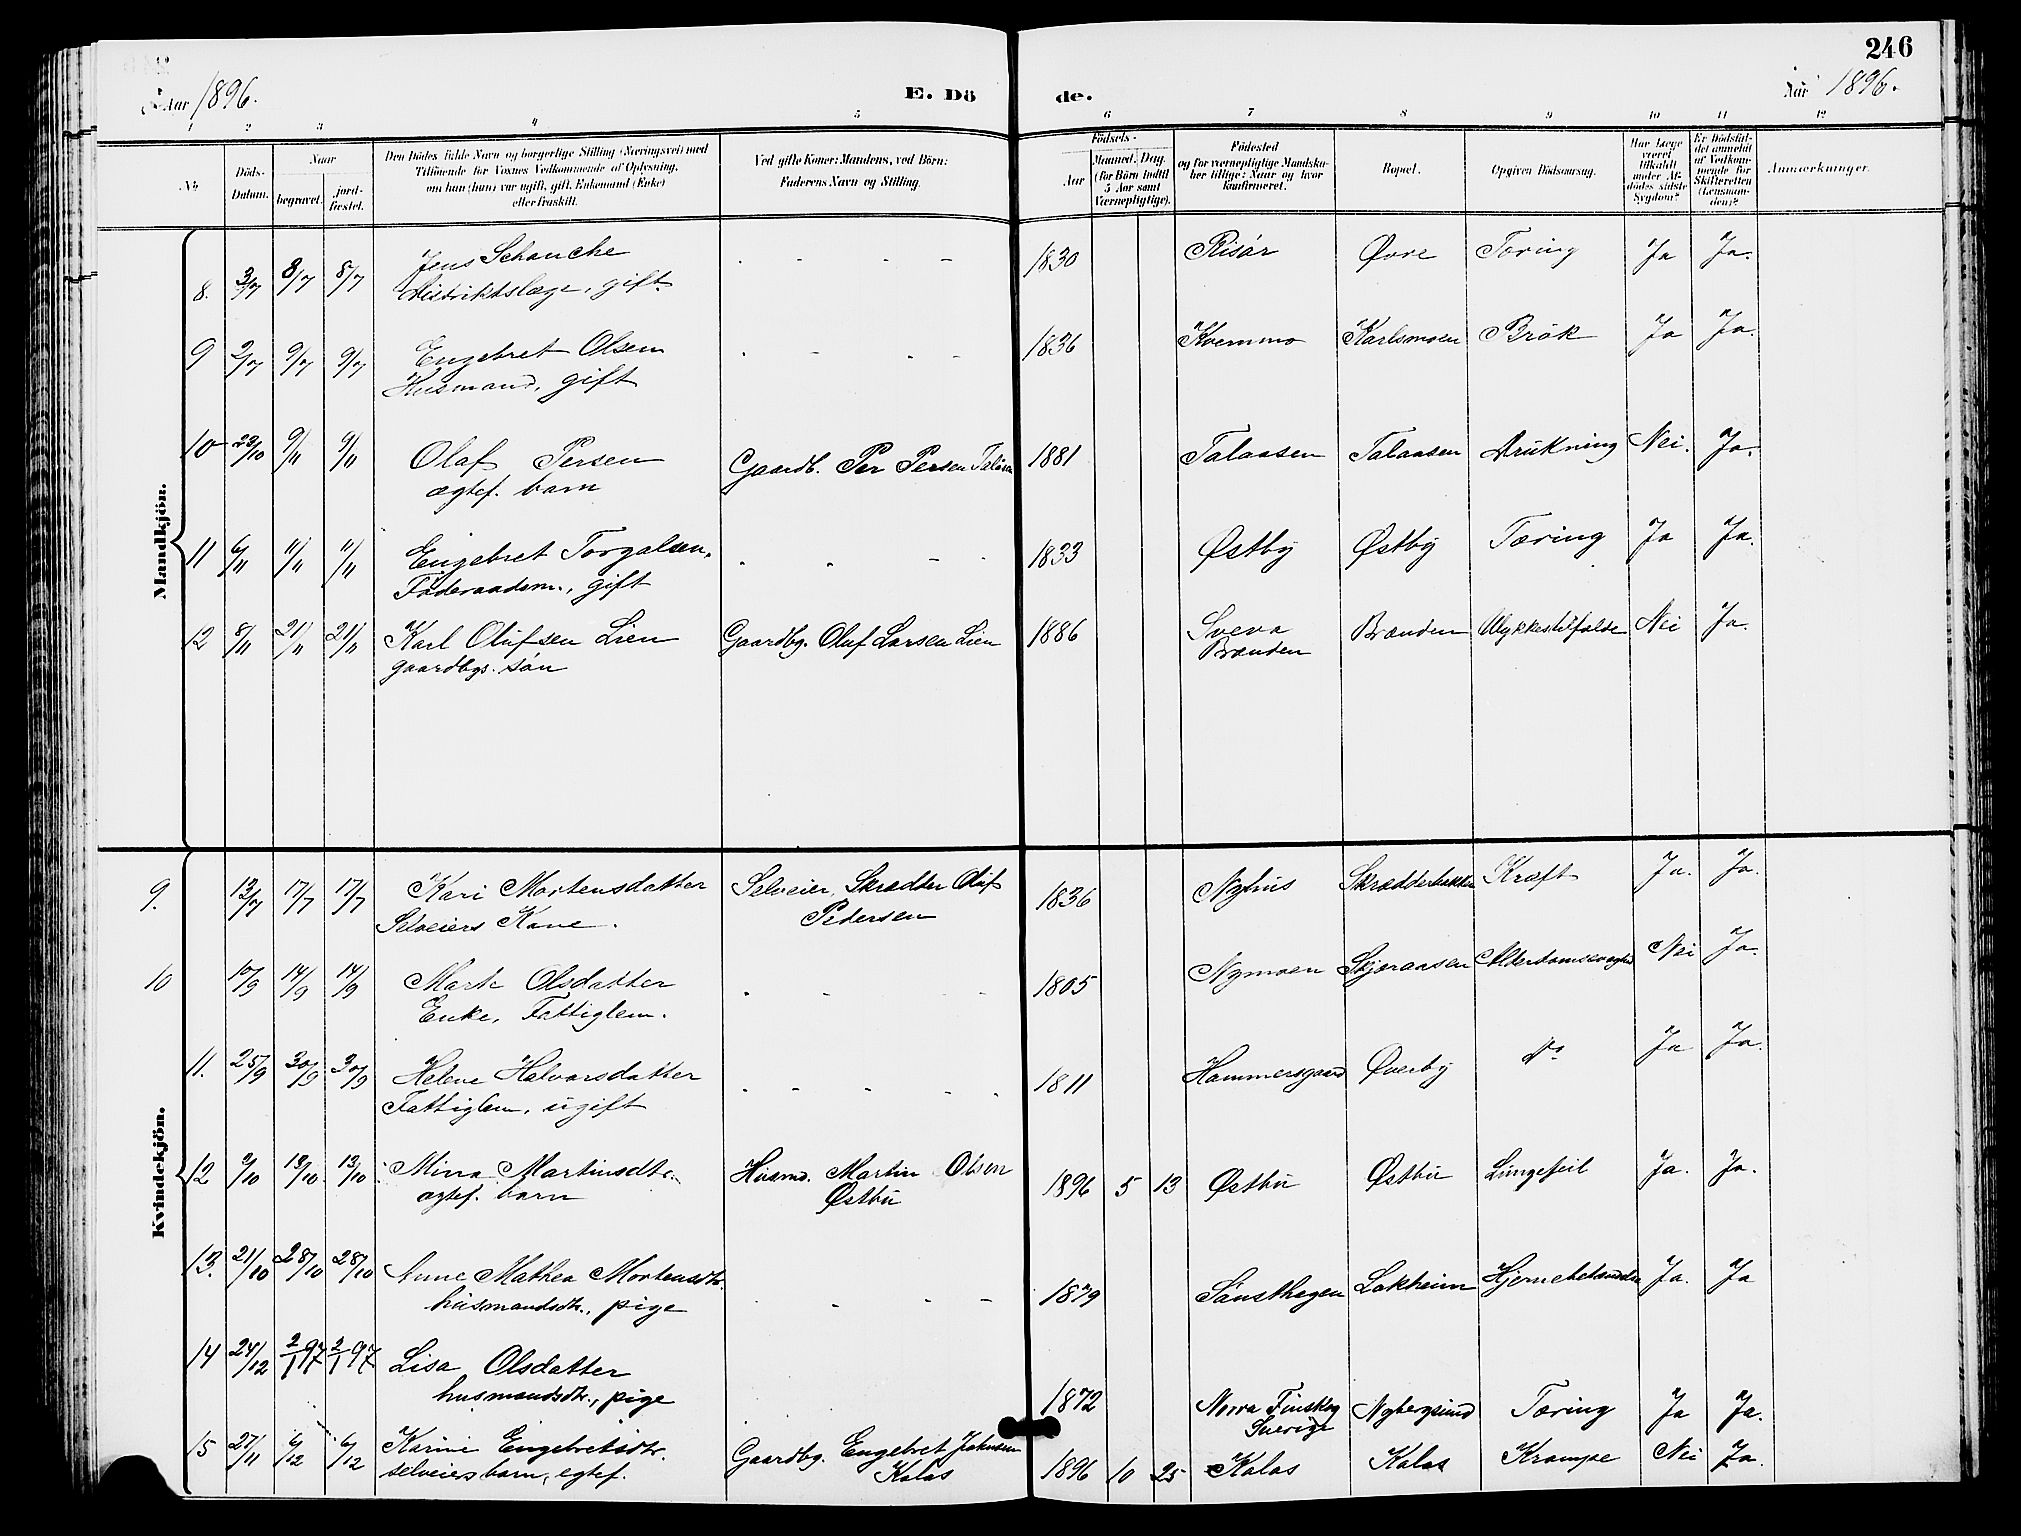 246
Aar 1896.
E. Dö de.
Aar 1896.
1 2 3 4 5 6 7 8 9 10 11 12
No
Döds-Datum.
Naar
begravet.
jord-fæstet.
Den Dödes fulde Navn og borgerlige Stilling (Næringsvei) med
Tilföiende for Voxnes Vedkommende af Oplysning,
om han (hun) var ugift, gift, Enkemand (Enke)
eller fraskilt.
Ved gifte Koner: Mandens, ved Börn:
Faderens Navn og Stilling.
Födsels-
Aar
Maaned. Dag.
(for Börn indtil
5 Aar samt
Værnepligtige).
Födested
og for værnepligtige Mandska-
ber tillige: Naar og hvor
konfirmeret.
Bopæl.
Opgiven Dödsaarsag.
Har Læge
været
tilkaldt
under Af-
dödes sidste
Sygdom?
Er Dödsfal-
det anmeldt
af Vedkom-
mende for
Skifteretten
(Lensman-
den)?
Anmærkninger.
Mandkjön.
8. 3/7 8/7 8/7 Jens Schancke - - - - 1830 Risör Øvre Tæring Ja Ja.
Distriktslæge, gift
9 2/7 9/7 9/7 Engebret Olsen - - - - 1836 Kvernmo Karlsmoen Brök Ja Ja.
Husmand, gift
10 23/10 9/11 9/11 Olaf Persen Gaardb. Per Persen Talåsen 1881 Talaasen Talaasen Drukning Nei. Ja.
ægtef. barn
11 6/11 11/11 11/11 Engebret Torgalsen, - - - - 1833 Østby Østby Tæring Ja Ja.
Föderaadsm., gift
12 8/11 21/11 21/11 Karl Olufsen Lien Gaardbg. Oluf Larsen Lien 1886 Svera Brænden Ulykkestilfælde Nei Ja.
gaardbgs. sön Brænden
Kvindekjön.
9. 13/7 17/7 17/7 Kari Mortensdatter Selveier, Skrædder Oluf 1836 Nyhus Skrædderbakken Kræft Ja. Ja.
Selveiers Kone. Pedersen
10 10/9 14/9 14/9 Marte Olsdatter - - - - 1805 Nymoen Skjeraasen Alderdomssvaghed Nei Ja.
Enke, Fattiglem.
11. 25/9 30/9 30/9 Helene Halvorsdatter - - - - 1811 Hammersgaard Øverby Do Ja Ja.
Fattiglem, ugift
12 9/10 13/10 13/10 Mina Martinsdtr. Husmd. Martin Olsen 1896 5 13 Østbü Østbü Lungefeil Ja. Ja.
ægtef. barn Østbü
13. 21/10 28/10 28/10 Anne Mathea Mortensdtr. - - - - 1879 Sansthagen Lokheim Hjernebetændelse Ja. Ja
husmandsdtr., pige
14 24/12 2/1 97 2/1 97 Lisa Olsdatter
husmandsdtr., pige 1872 Norra Finskog Nybergsund Tæring Ja Ja.
Sverige
15 27/11 6/12 6/12 Karine Engebretsdtr. Gaardbg. Engebret Johnsen 1896 10 25 Kolos Kolos Krampe Nei Ja.
selveiers barn, egtef. Kolos